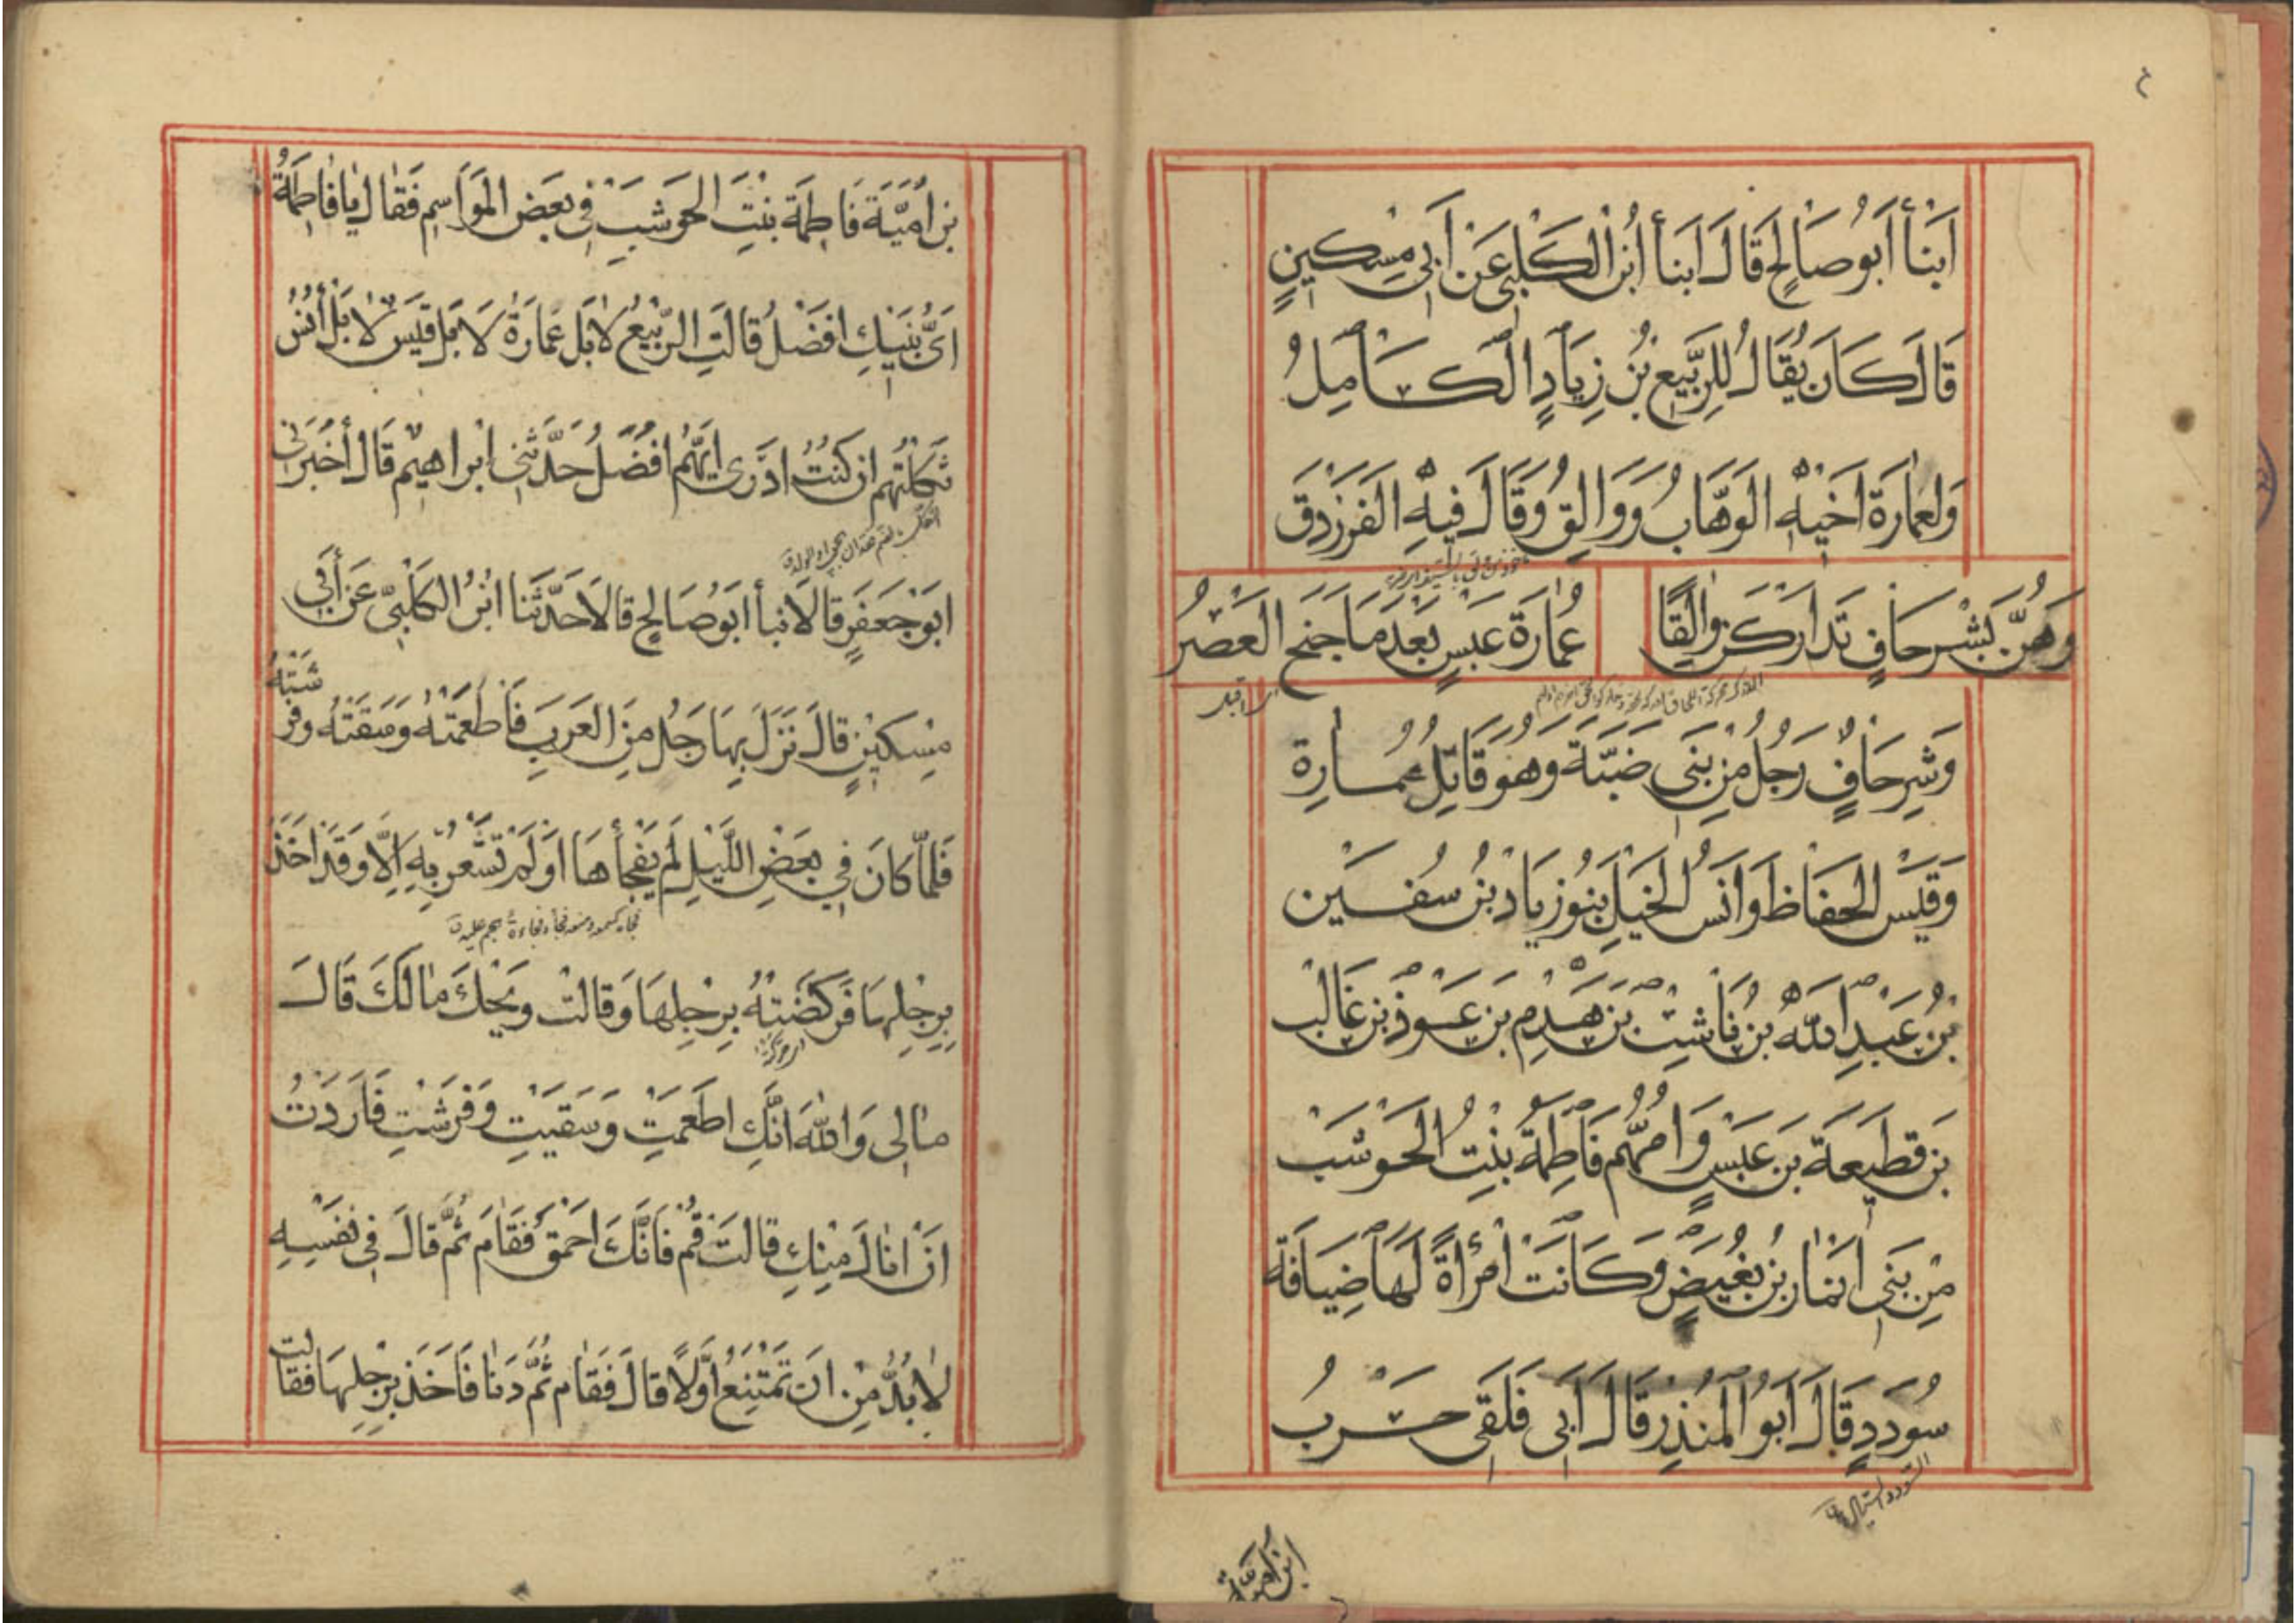 ٤
اَنْبأ أَبُو صَالِحٍ قَالَ اَنبأ اُبْنُ الْكَلْبِيِّ عَنْ أَبِي مِسْكِينٍ
قَالَ كَانَ يُقَالُ لِلرَّبِيعِ بْنِ زِيَادٍ الْكَامِلُ
وَلِعِمَارَةَ اَخِيْهِ الوَهَّابُ وَوَالِقُ وَقَالَ فِيهِ الفَرَزْدَقَ
وَهُنَّ بَشْرحَافٍ تَدَارَكْنَ وَالِقًا
عُمَارَةَ عَبْسٍ بَعْدَ مَا جَنَحَ الْعَصْرُ
وَشِرحَافٌ رَجُلٌ مِنْ بَنِي ضَبَّةَ وَهُوَ قَاتِلُ عُمَارِة
وَقَيْسُ الحِفَاظِ وَاَنَسُ الْخَيْلِ بَنُوزِيَادِ بْنُ سُفْيَن
بْنُ عَبْدِ اللهِ بْن نَاشِبْ بْن هَدْمِ بْن عَوْذِ بْن غَالِب
بْن قَطِيعَةَ بْن عَبْسٍ وَاُمُّهُم فَاطِمَةُ بِنْتُ الْحَوْشَب
مِنْ بَنِي اَنْمَار بْن بَغِيضٍ وَكَانَتْ اُمْرَأةً لَهَا ضِيَافَة
سُودَدٍ قَالَ اَبُو الْمُنْذِر قَالَ اَبِي فَلَقِيَ حَرْبُ
ابن اُمَيَّة
بن اُمَيَّةَ فَاطِمَةَ بِنْتَ الحَوشَبَ فِي بَعْضِ المَوَاسِمِ فَقَالَ يَا فَاطِمَةُ
اَيُّ بَنِيكِ اَفْضَلُ قَالَتِ الرَّبِيْعُ لَا بَلْ عَمَارَةُ لَا بَلْ قَيْسٌ لَا بَلْ أَنَسٌ
ثَكِلْتُهُم اِنْ كُنْتُ اَدْرِي اَيُّهُمْ اَفْضَلُ حَدَّثَنِي اِبْرَاهِيْمُ قَالَ أَخْبَرَنِي
اَبُوْ جَعْفَرٍ قَالَ انبأ اَبُوْ صَالِحٍ قَالَا حَدَّثَنَا ابْنُ الكَلْبِيِّ عَنْ أَبِي
مِسْكِيْنٍ قَالَ نَزَلَ بِهَا رَجُلٌ مِنَ العَرَبِ فَأَطْعَمَتْهُ وَسَقَتْهُ وَفَرَشَتْهُ
فَلَمَّا كَانَ فِي بَعْضِ اللَّيْلِ لَمْ يَفْجأْهَا اَوْ لَمْ تَشْعُرْ بِهِ اِلَّا وَقَدْ اَخَذَ
بِرِجْلِهَا فَرَكَضَتْهُ بِرِجْلِهَا وَقَالَتْ وَيْحَكَ مَالَكَ قَالَ
مَالِي وَاللهِ اَنَّكِ اَطْعَمْتِ وَسَقَيْتِ وَفَرَشْتِ فَاَرَدْتُ
اَنْ اَنَالَ مِنْكِ قَالَتْ قُمْ فَاِنَّكَ اَحْمَقُ فَقَامَ ثُمَّ قَالَ فِي نَفْسِهِ
لَا بُدَّ مِنْ اَنْ تَمْتَنِعَ اَوَّلًا قَالَ فَقَامَ ثُمَّ دَنَا فَاَخَذَ بِرِجْلِهَا فَقَالَت